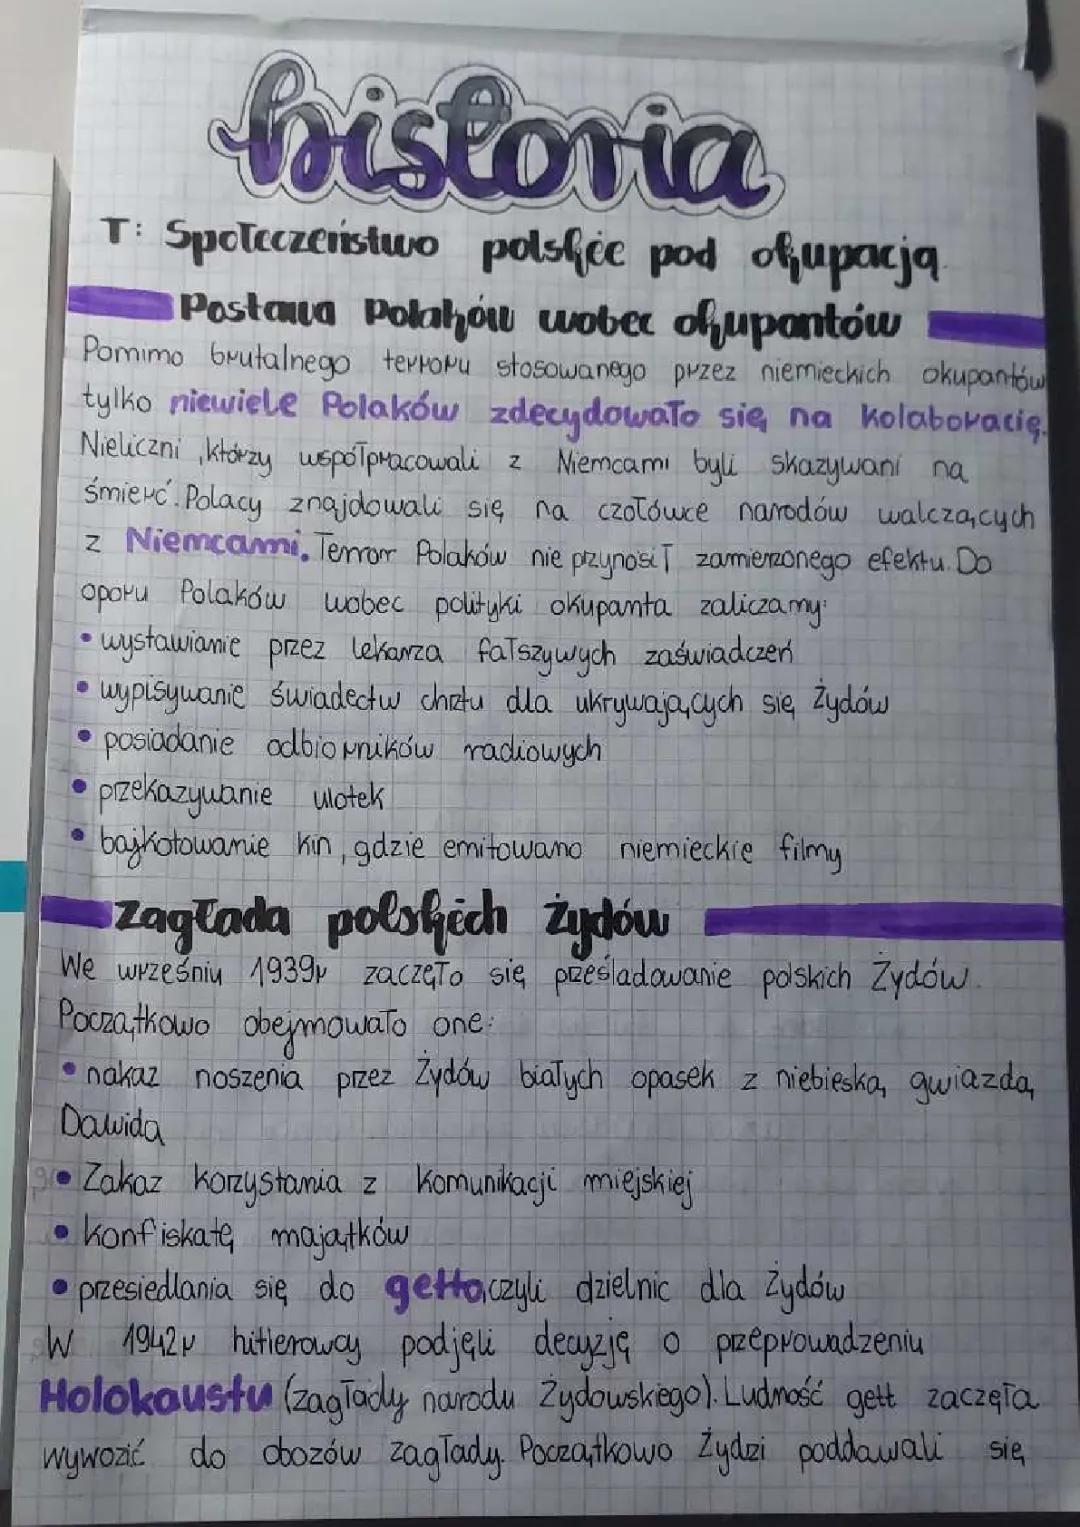 historia
T: Społeczeństwo polskie pod okupacją
Postawa Polaków wobec okupantów
Pomimo brutalnego terroru stosowanego przez niemieckich okupantów
tylko niewiele Polaków zdecydowało się na kolaborację.
Nieliczni, którzy współpracowali z Niemcami byli skazywani na
śmierć. Polacy znajdowali się na czołówce narodów walczących
z Niemcami. Terror Polaków nie przynosił zamierzonego efektu. Do
oporu Polaków wobec polityki okupanta zaliczamy:
• wystawianie przez lekarza fałszywych zaświadczeń
• wypisywanie świadectw chrztu dla ukrywających się Żydów
• posiadanie odbiorników radiowych
• przekazywanie ulotek
• bajkotowanie kin, gdzie emitowano niemieckie filmy
Zagłada polskich żydów
We wrześniu 1939r zaczęło się prześladowanie polskich Żydów.
Początkowo obejmowało one:
• nakaz noszenia przez Żydów białych opasek z niebieską gwiazdą
Dawida
• Zakaz korzystania z komunikacji miejskiej
• konfiskatę majątków
• przesiedlania się do getta, czyli dzielnic dla Żydów
W 1942r hitlerowcy podjęli decyzję o przeprowadzeniu
Holokaustu (zagłady narodu Żydowskiego). Ludność gett zaczęła
wywozić do obozów zagłady. Początkowo Żydzi poddawali się